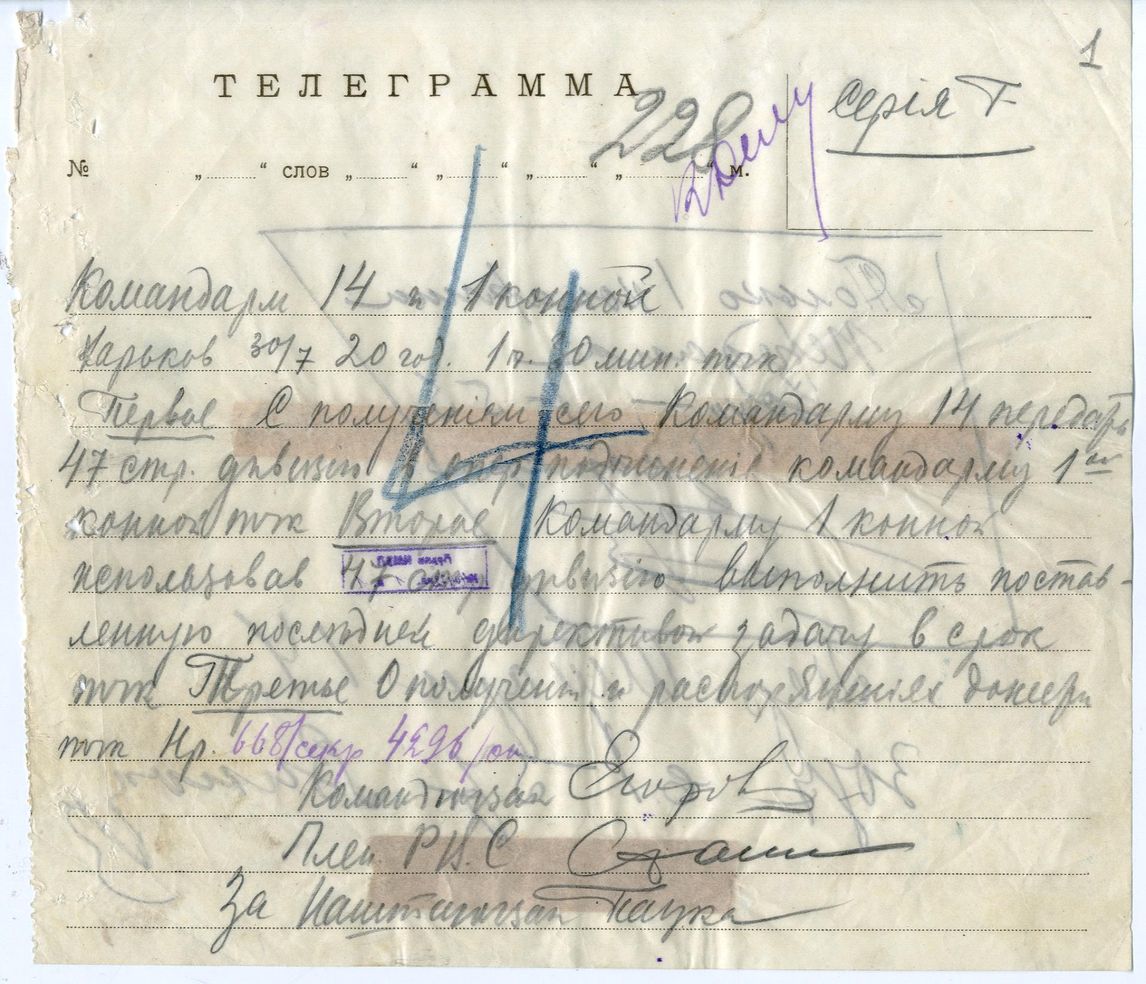 1
ТЕЛЕГРАММА
228
Серія Г
№ „ “ слов „ “ „ “ „ “ „ “ м.
Командарм 14 и 1 конной
Харьков 30/7 20 год. 1 ч. 30 мин. тчк
Первое С полученіем сего Командарму 14 передать
47 стр. дивизію в подчиненіе командарму 1ой
конной тчк Второе Командарму 1 конной
использовав 47 дивизію выполнить постав-
ленную последней директивой задачу в срок
тчк Третье О полученіи и распоряженіях донести
тчк Нр. 668/секр 4296/оп
Командюгзап Егоров
Член Р.В.С Сталин
За Наштаюгзап Паука